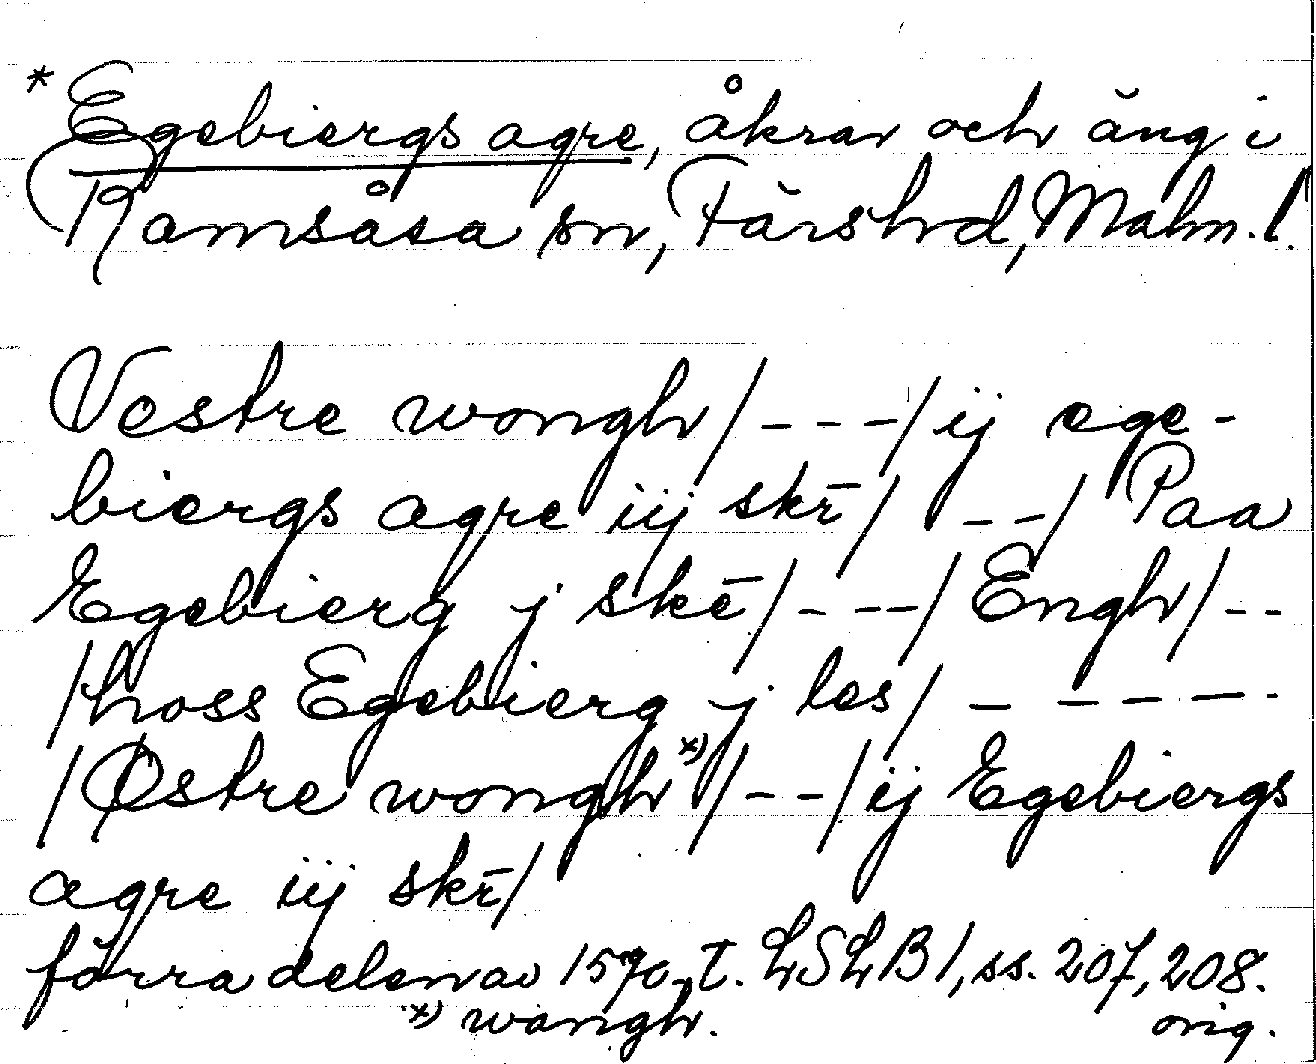 * Egebiergs agre, åkrar och äng i
Ramsåsa sn, Färs hd, Malm. l.
Vestre wongh/---/ij ege-
biergs agre iij skr̄/--/Paa
Egebierg j skē/---/Engh/--
/hoss Egebierg j les/-----
/Østre wongh x)/--/ij Egebiergs
agre iij skr̄/
förra delen av 1570-t. LSLB 1, ss. 207, 208.
x) wangh. orig.